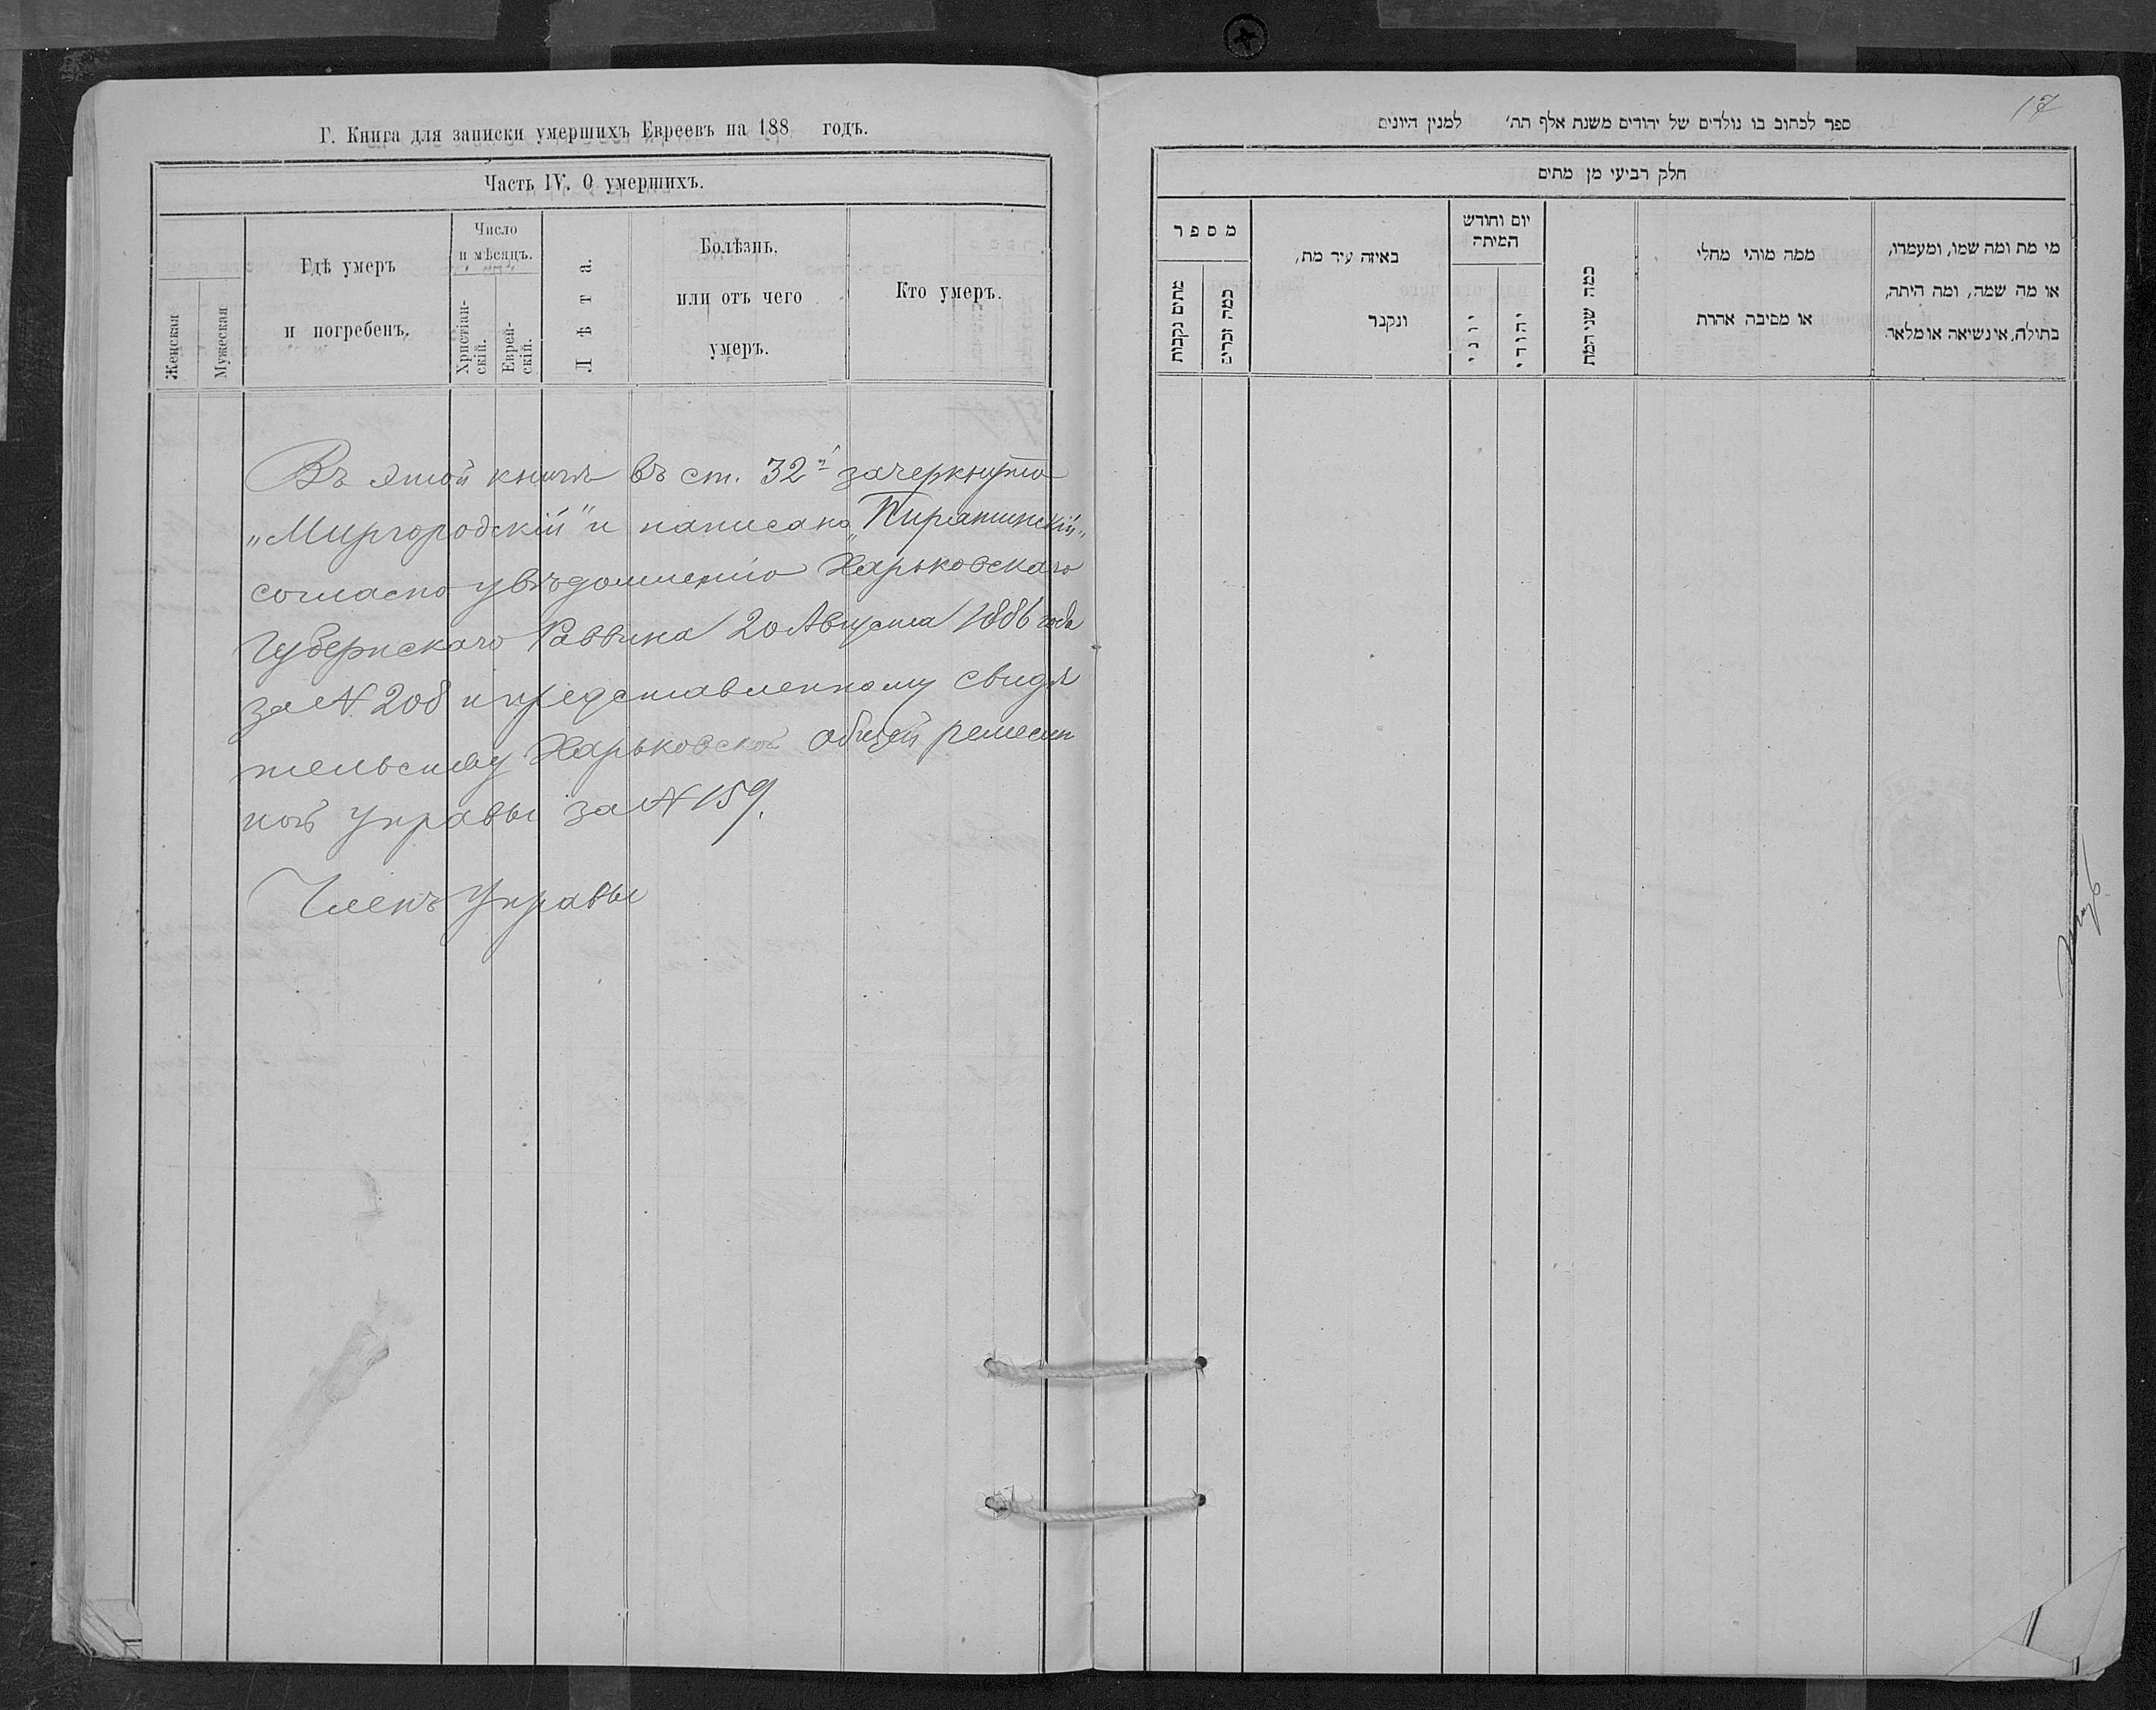 Г. Книга для записки умершихъ Евреевъ на 188 годъ.
Часть IV. О умершихъ.
Женская
Мужеская
Гдѣ умеръ
и погребенъ.
Число
и мѣсяцъ.
Христіан-
скій.
Еврей-
скій.
Лѣта.
Болѣзнь,
или отъ чего
умеръ.
Кто умеръ.
Въ этой книгѣ въ ст. 32й зачеркнуто
„Миргородскій" и написано „Пирятинскій„
согласно увѣдомленію Харьковскаго
Губернскаго Раввина 20 Августа 1886 года
за N 208 и представленному свидѣ
тельству Харьковской общей ремеслен
ной управы за N 159.
Членъ Управы
17
ספר לכתוב בו נולדים של יהודים משנת אלף תת׳ למנין היונים
חלק רביעי מן מתים
מספר
מתים נקבות
כמה זכרים
באיזה עיר מת,
ונקבר
יום וחודש
המיתה
יוני
יהודי
כמה שני המת
ממה מותי מחלי
או מסיבה אהרת
מי מת ומה שמו, ומעמדו,
או מה שמה, ומה היתה,
בתולה, אי נשיאה או מלאה